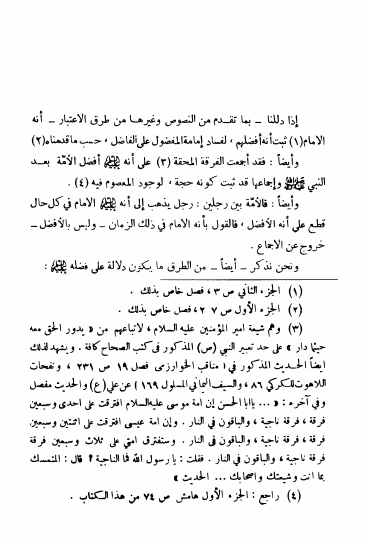 إذا دللنا – بما تقدم من النصوص وغيرها من طرق الاعتبار – أنه
الامام(١) ثبت أنه أفضلهم ، لفساد إمامة المفضول على الفاضل ، حسب ما قدمناه(٢)
وأيضاً : فقد أجمعت الفرقة المحقة (٣) على أنه أفضل الأمّة بعد
النبي وإجماعها قد ثبت كونه حجة ، لوجود المعصوم فيه (٤) .
وأيضاً : فالأمّة بين رجلين : رجل يذهب إلى أنه الامام في كل حال
قطع على أنه الأفضل ، فالقول بأنه الامام في ذلك الزمان – وليس بالأفضل –
خروج عن الاجماع .
ونحن نذكر – أيضاً – من الطرق ما يكون دلالة على فضله :
(١) الجزء الثاني ص ٣ ، فصل خاص بذلك .
(٢) الجزء الأول ص ٢٠٧ ، فصل خاص بذلك .
(٣) وهم شيعة امير المؤمنين عليه السلام ، لاتباعهم من « يدور الحق معه
حيثما دار » على حد تعبير النبي (ص) المذكور فى كتب الصحاح كافة . ويشهد لذلك
ايضاً الحديث المذكور في ( مناقب الخوارزمى فصل ١٩ ص ٢٣١ ، ونفحات
اللاهوت للكركي ٨٦ ، والسيف اليماني المسلول ١٦٩ ) عن علي (ع) والحديث مفصل
وفي آخره : « ... ياابا الحسن إن امة موسى عليه السلام افترقت على احدى وسبعين
فرقة ، فرقة ناجية ، والباقون في النار . وإن امة عيسى افترقت على اثنتين وسبعين
فرقة ، فرقة ناجية ، والباقون فى النار . وستفترق امتي على ثلاث وسبعين فرقة
فرقة ناجية ، والباقون في النار . فقلت : يا رسول الله فما الناجية ؟ قال : المتمسك
بما انت وشيعتك واصحابك ... الحديث »
(٤) راجع : الجزء الأول هامش ص ٧٤ من هذا الكتاب .